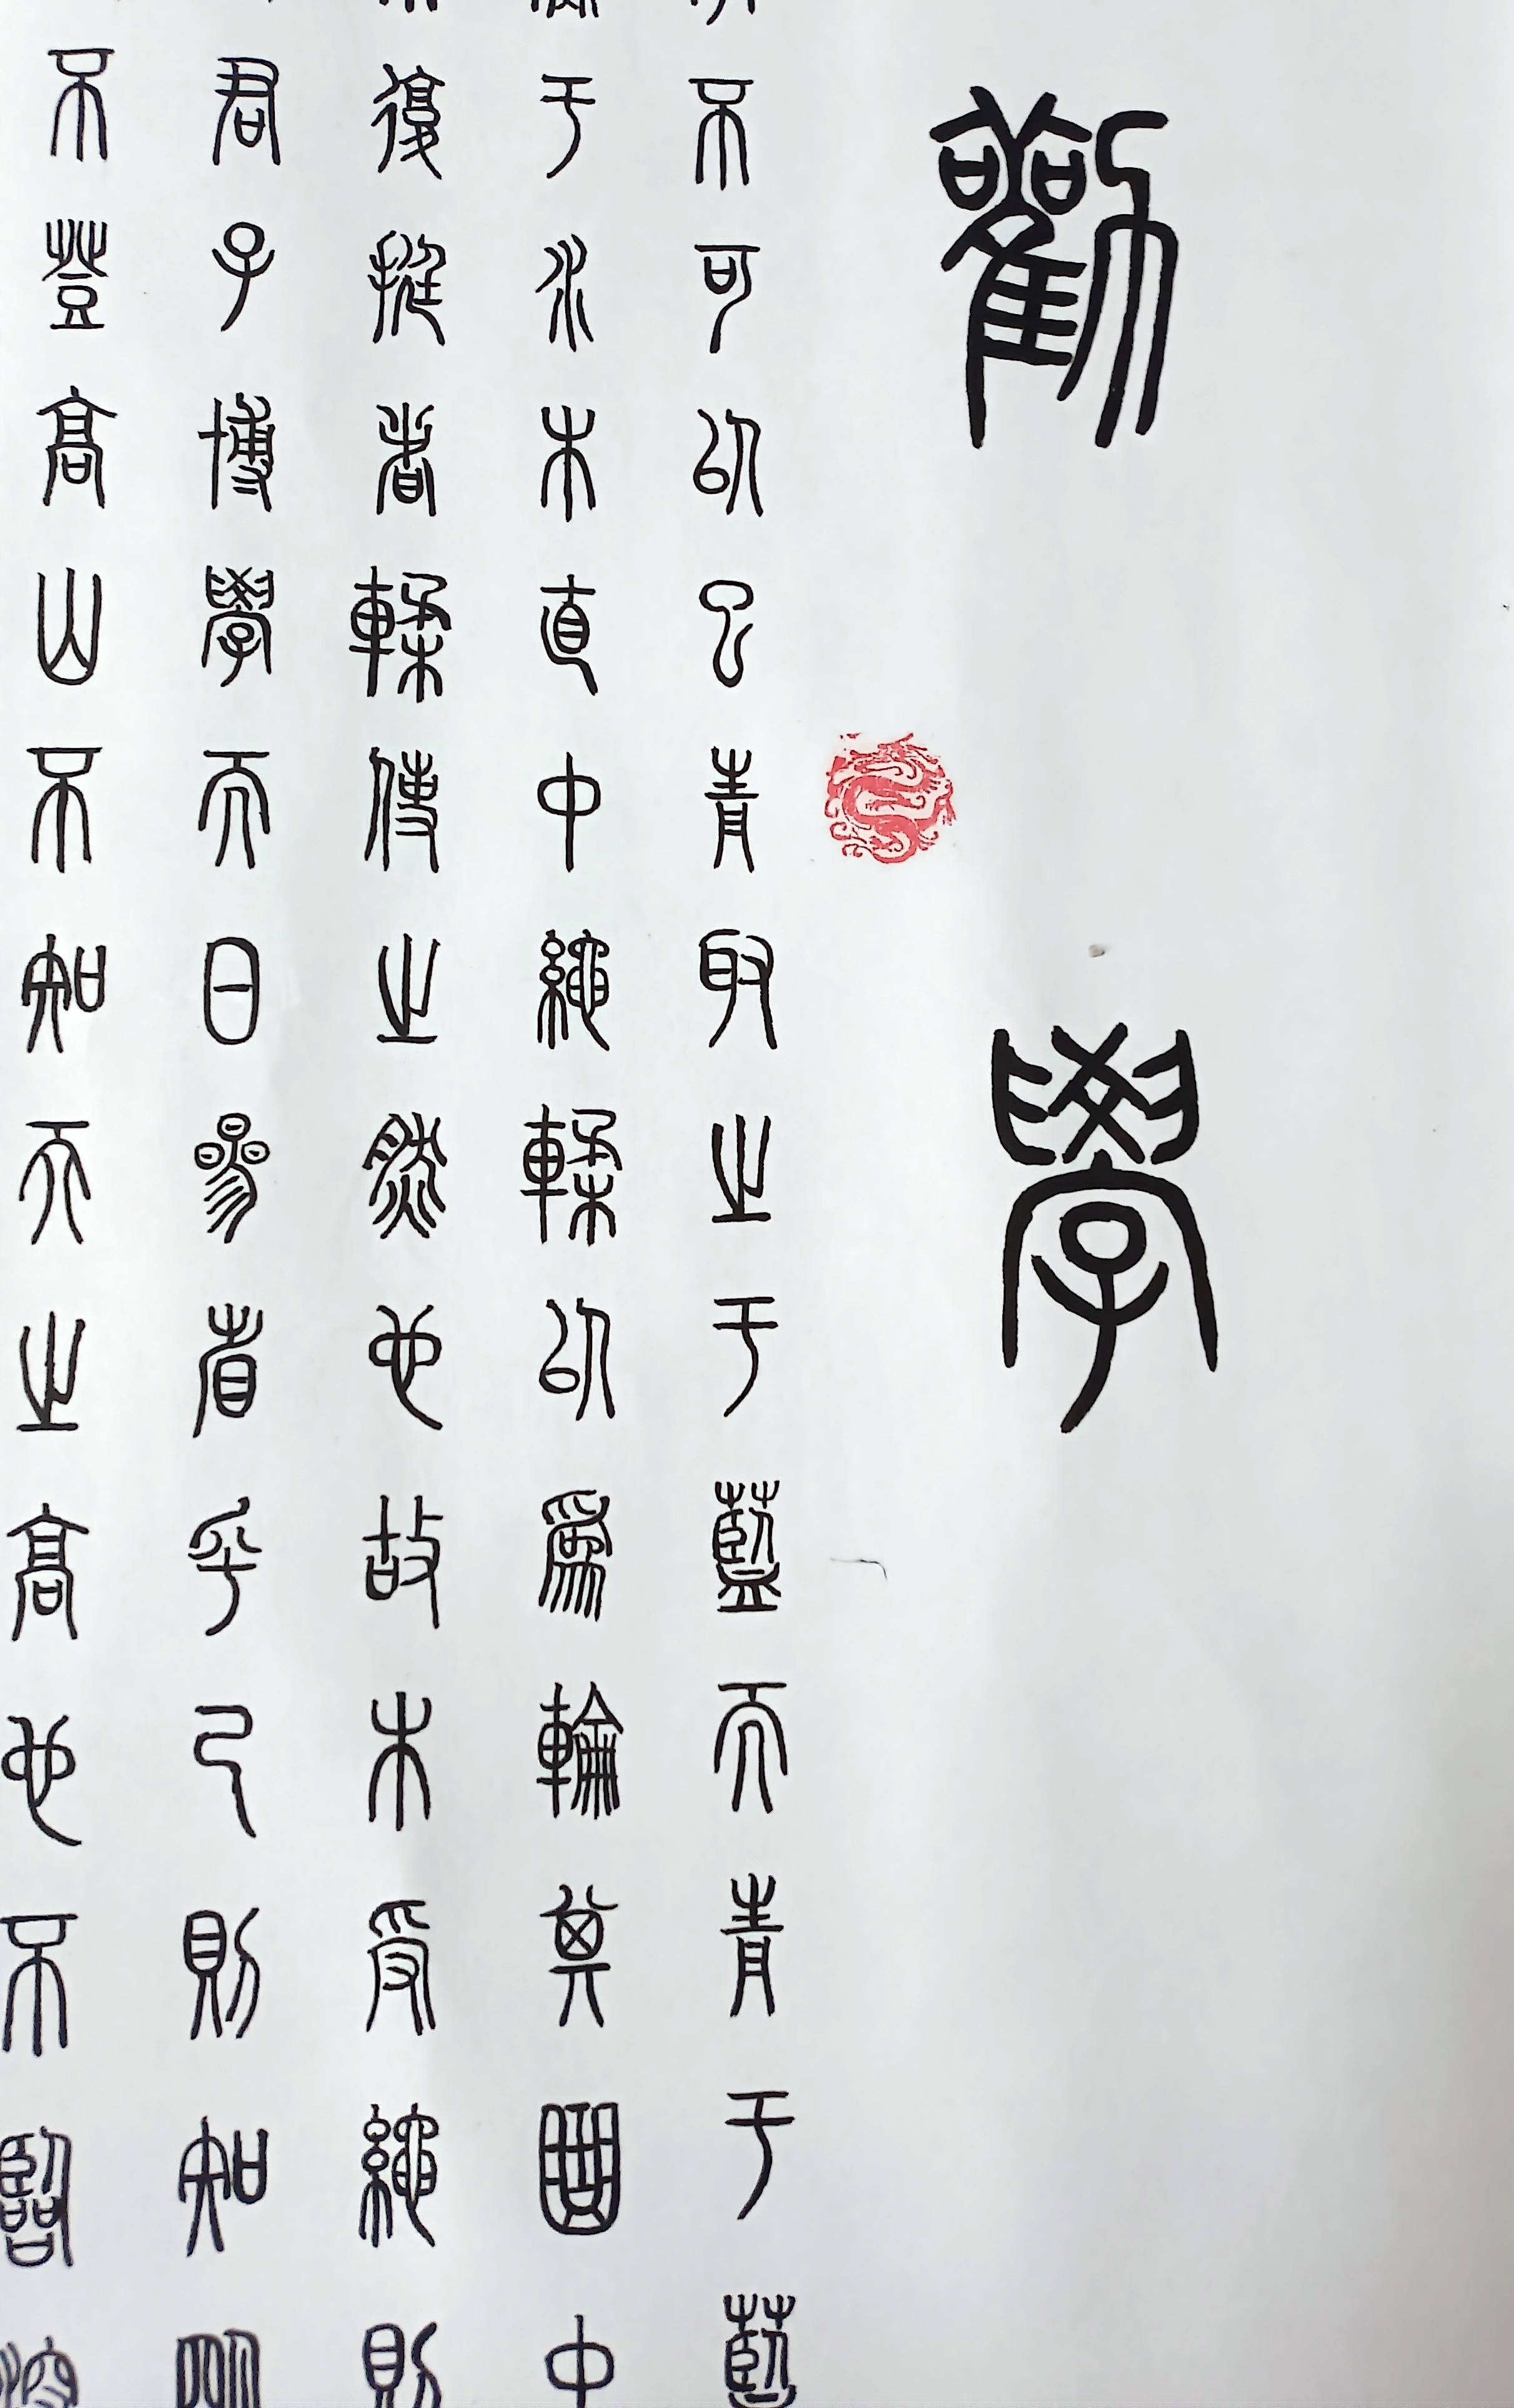 勸學
不可以已青取之于藍而青于藍
于水木直中繩輮以爲輪其圓中
復挺者輮使之然也故木受繩則
君子博學而日參省乎己則知明
不登高山不知天之高也不臨深